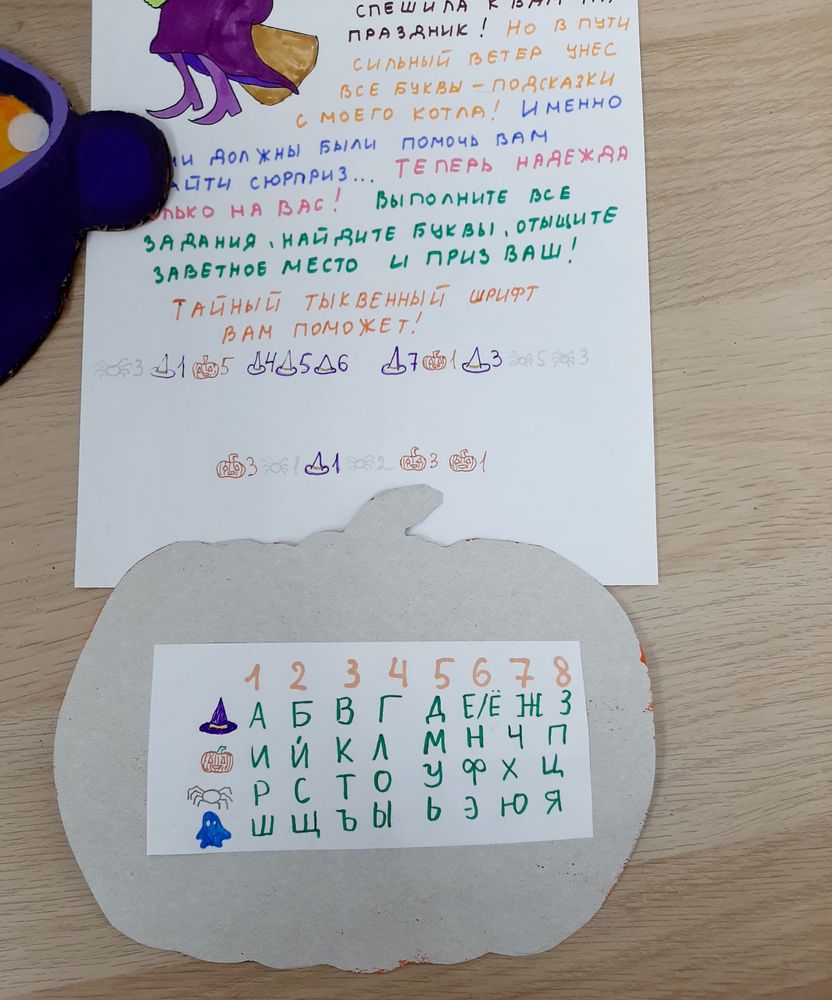 СПЕШИЛА К ВАМ НА
ПРАЗДНИК! НО В ПУТИ
СИЛЬНЫЙ ВЕТЕР УНЕС
ВСЕ БУКВЫ - ПОДСКАЗКИ
С МОЕГО КОТЛА! ИМЕННО
ДОЛЖНЫ БЫЛИ ПОМОЧЬ ВАМ
СЮРПРИЗ... ТЕПЕРЬ НАДЕЖДА
НА ВАС! ВЫПОЛНИТЕ ВСЕ
ЗАДАНИЯ, НАЙДИТЕ БУКВЫ, ОТЫЩИТЕ
ЗАВЕТНОЕ МЕСТО И ПРИЗ ВАШ!
ТАЙНЫЙ ТЫКВЕННЫЙ ШРИФТ
ВАМ ПОМОЖЕТ!
3 1 5 4 5 6 7 1 3 5 3
3 1 1 2 3 1
1 2 3 4 5 6 7 8
А Б В Г Д Е/Ё Ж З
И Й К Л М Н Ч П
Р С Т О У Ф Х Ц
Ш Щ Ъ Ы Ь Э Ю Я